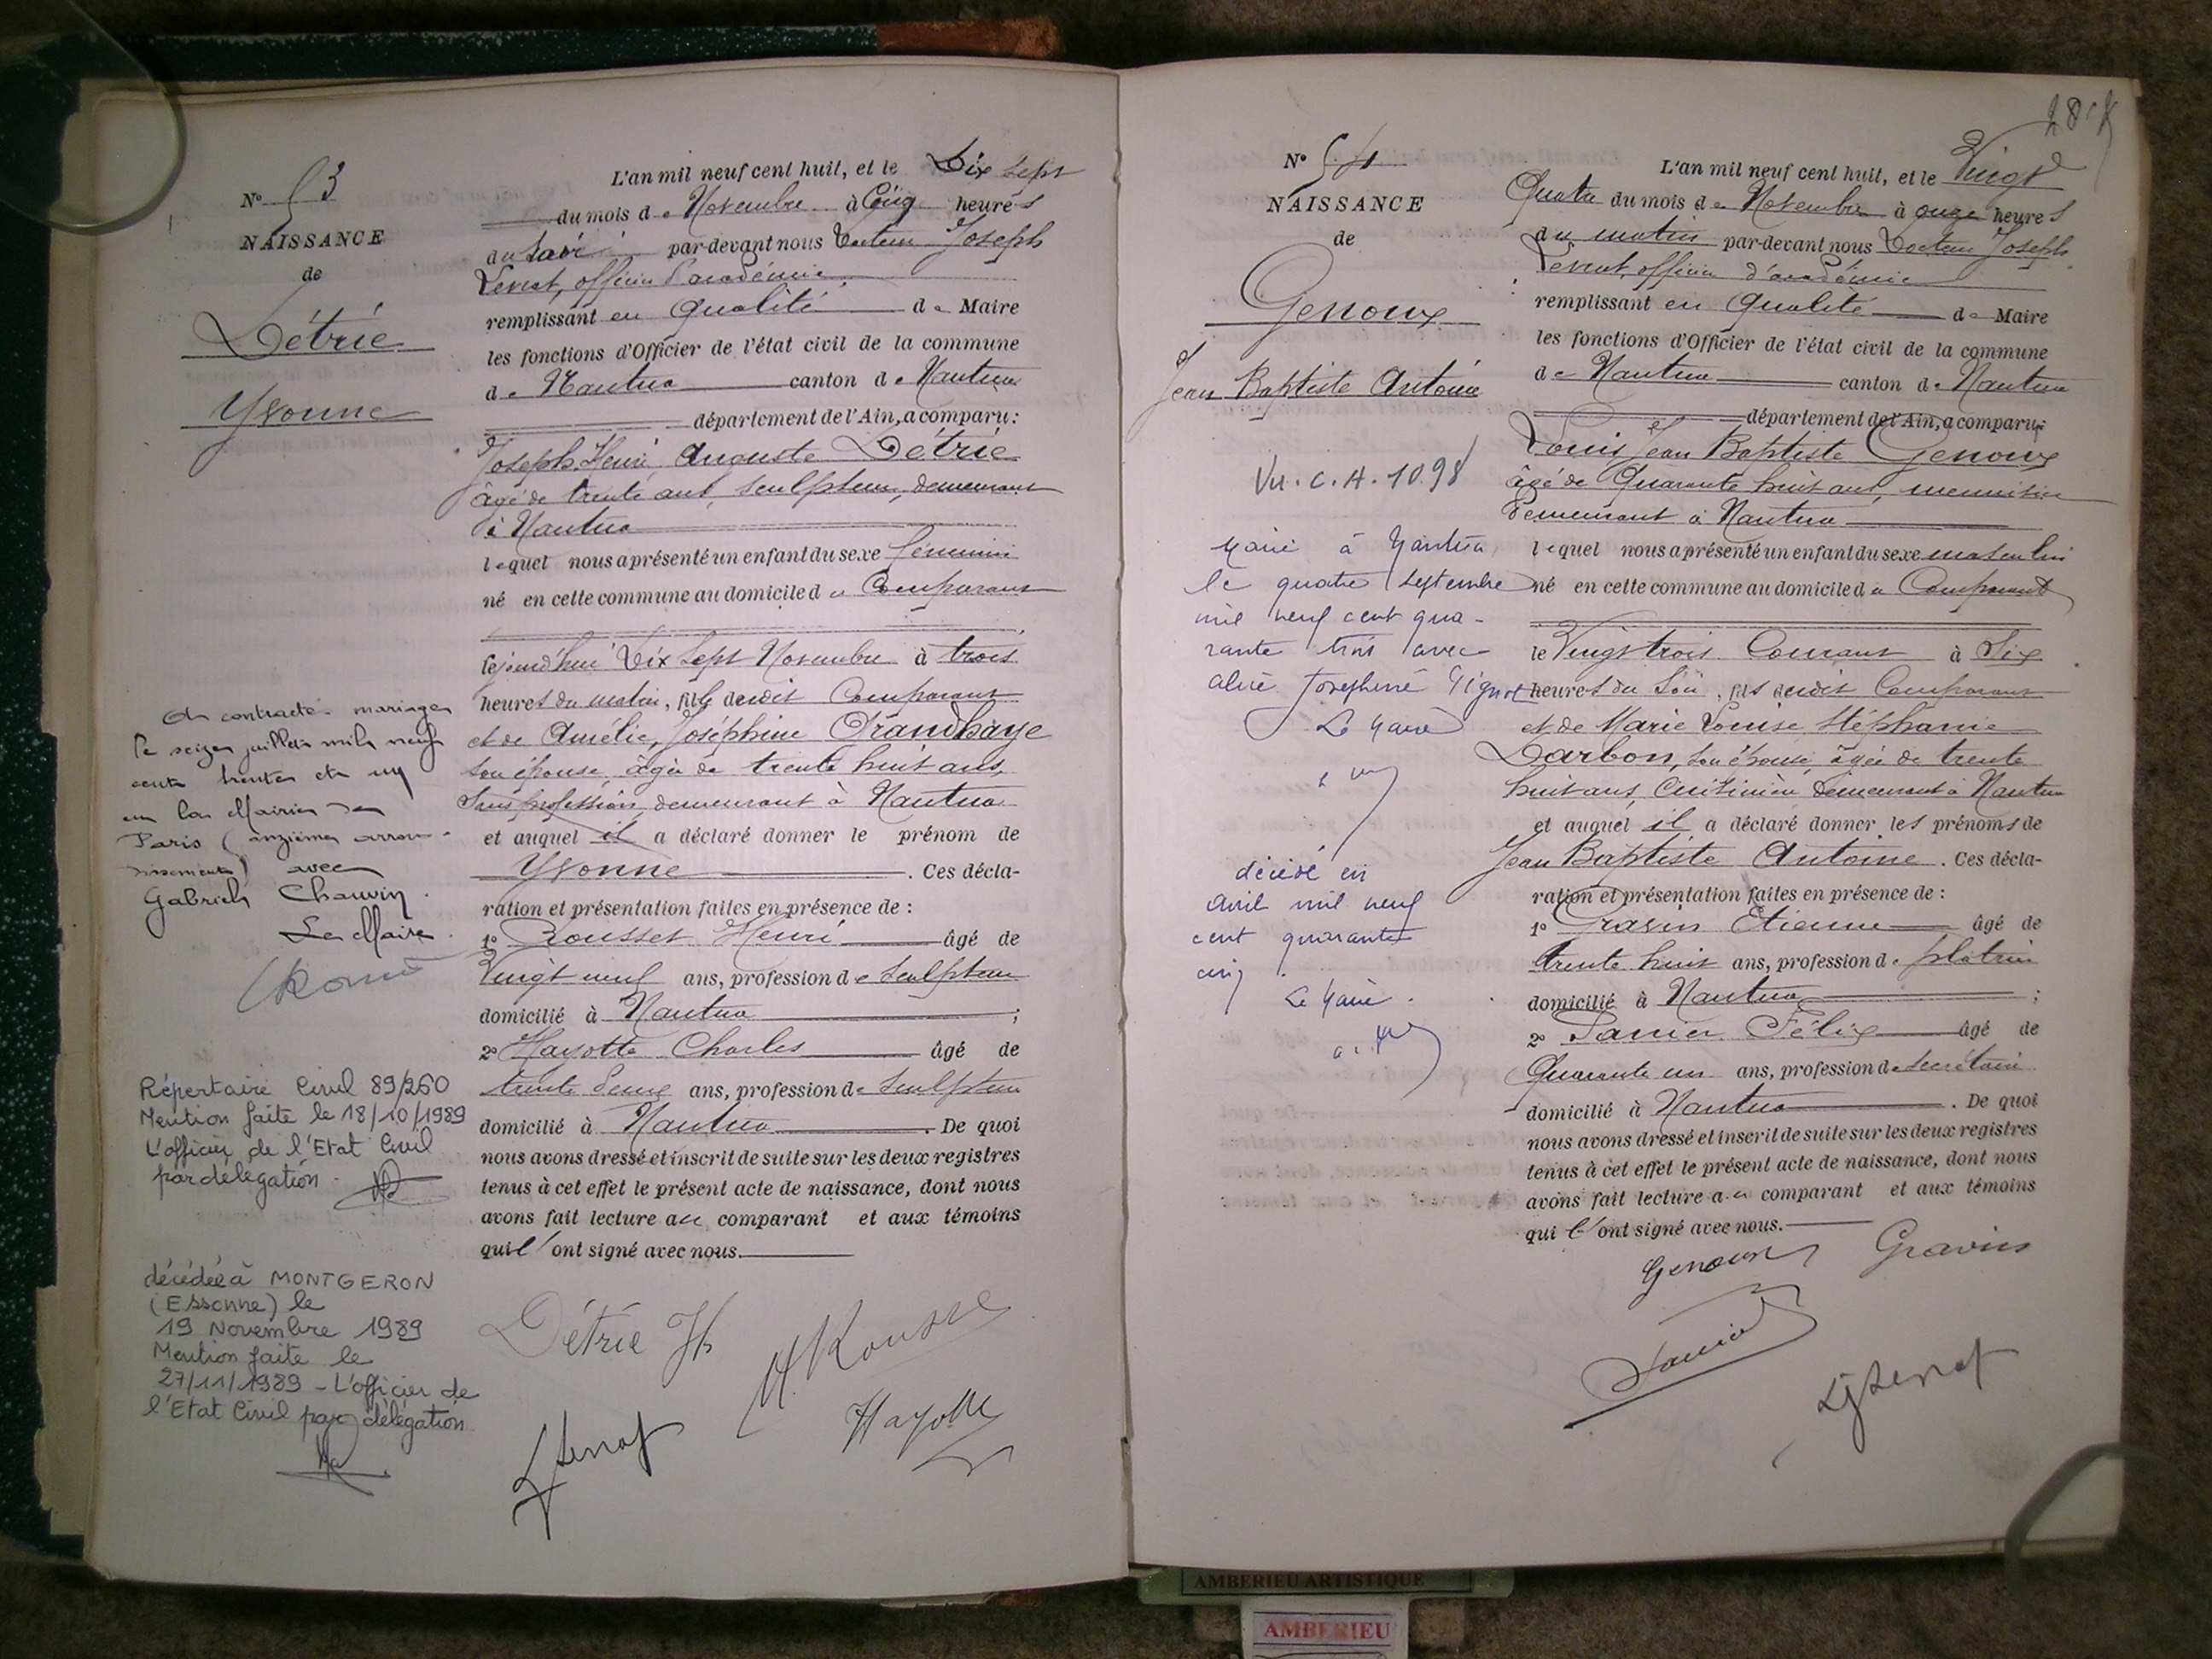 N° 53
NAISSANCE
de
Détrie
Yvonne
a contracté mariage
le seize juillet mil neuf
cent trente et un
en la Mairie de
Paris (onzième arron-
dissement) avec
Gabriel Chauvin.
Le Maire.
Répertoire Civil 89/260
Mention faite le 18/10/1989
L'officier de l'Etat Civil
par délégation.
décédée à MONTGERON
(Essonne) le
19 Novembre 1989
Mention faite le
27/11/1989 - L'officier de
l'Etat Civil par délégation
L'an mil neuf cent huit, et le Dix sept
du mois de Novembre à Cinq heures
du soir par-devant nous Docteur Joseph
officier d'académie
remplissant en qualité de Maire
les fonctions d'Officier de l'état civil de la commune
de Nantua canton de Nantua
département de l'Ain, a comparu:
Joseph Henri Auguste Détrie
âgé de trente ans, sculpteur, demeurant
à Nantua
lequel nous a présenté un enfant du sexe féminin
né en cette commune au domicile du Comparant
cejourd'hui Dix Sept Novembre à trois
heures du matin, fille dudit Comparant
et de Amélie, Joséphine Grandhaye
son épouse, âgée de trente huit ans,
sans profession demeurant à Nantua
et auquel il a déclaré donner le prénom de
Yvonne. Ces décla-
ration et présentation faites en présence de :
1° Rousset Henri âgé de
Vingt neuf ans, profession de sculpteur
domicilié à Nantua ;
2° Hayotte Charles âgé de
trente deux ans, profession de sculpteur
domicilié à Nantua. De quoi
nous avons dressé et inscrit de suite sur les deux registres
tenus à cet effet le présent acte de naissance, dont nous
avons fait lecture au comparant et aux témoins
qui l'ont signé avec nous.
Détrie H
H. Rousset
Hayotte
N° 54
NAISSANCE
de
Genoux
Jean Baptiste Antoine
Vu. C.H. 1098
Marié à Nantua
le quatre septembre
mil neuf cent qua-
rante trois avec
Joséphine
Le Maire
décédé en
avril mil neuf
cent quarante
cinq.
Le Maire.
L'an mil neuf cent huit, et le Vingt
Quatre du mois de Novembre à onze heures
du matin par-devant nous Docteur Joseph
officier d'académie
remplissant en qualité de Maire
les fonctions d'Officier de l'état civil de la commune
de Nantua canton de Nantua
département de l'Ain, a comparu:
Louis Jean Baptiste Genoux
âgé de Quarante huit ans, menuisier
demeurant à Nantua
lequel nous a présenté un enfant du sexe masculin
né en cette commune au domicile du Comparant
le Vingt trois Courant à Six
heures du Soir, fils dudit Comparant
et de Marie Louise Stéphanie
Darbon, son épouse, âgée de trente
huit ans, Cuisinière demeurant à Nantua
et auquel il a déclaré donner les prénoms de
Jean Baptiste Antoine. Ces décla-
ration et présentation faites en présence de :
1° Gravin Etienne âgé de
trente huit ans, profession de plâtrier
domicilié à Nantua ;
2° Félix âgé de
Quarante un ans, profession de secrétaire
domicilié à Nantua. De quoi
nous avons dressé et inscrit de suite sur les deux registres
tenus à cet effet le présent acte de naissance, dont nous
avons fait lecture au comparant et aux témoins
qui l'ont signé avec nous.
Genoux Gravin
AMBERIEU ARTISTIQUE
AMBERIEU